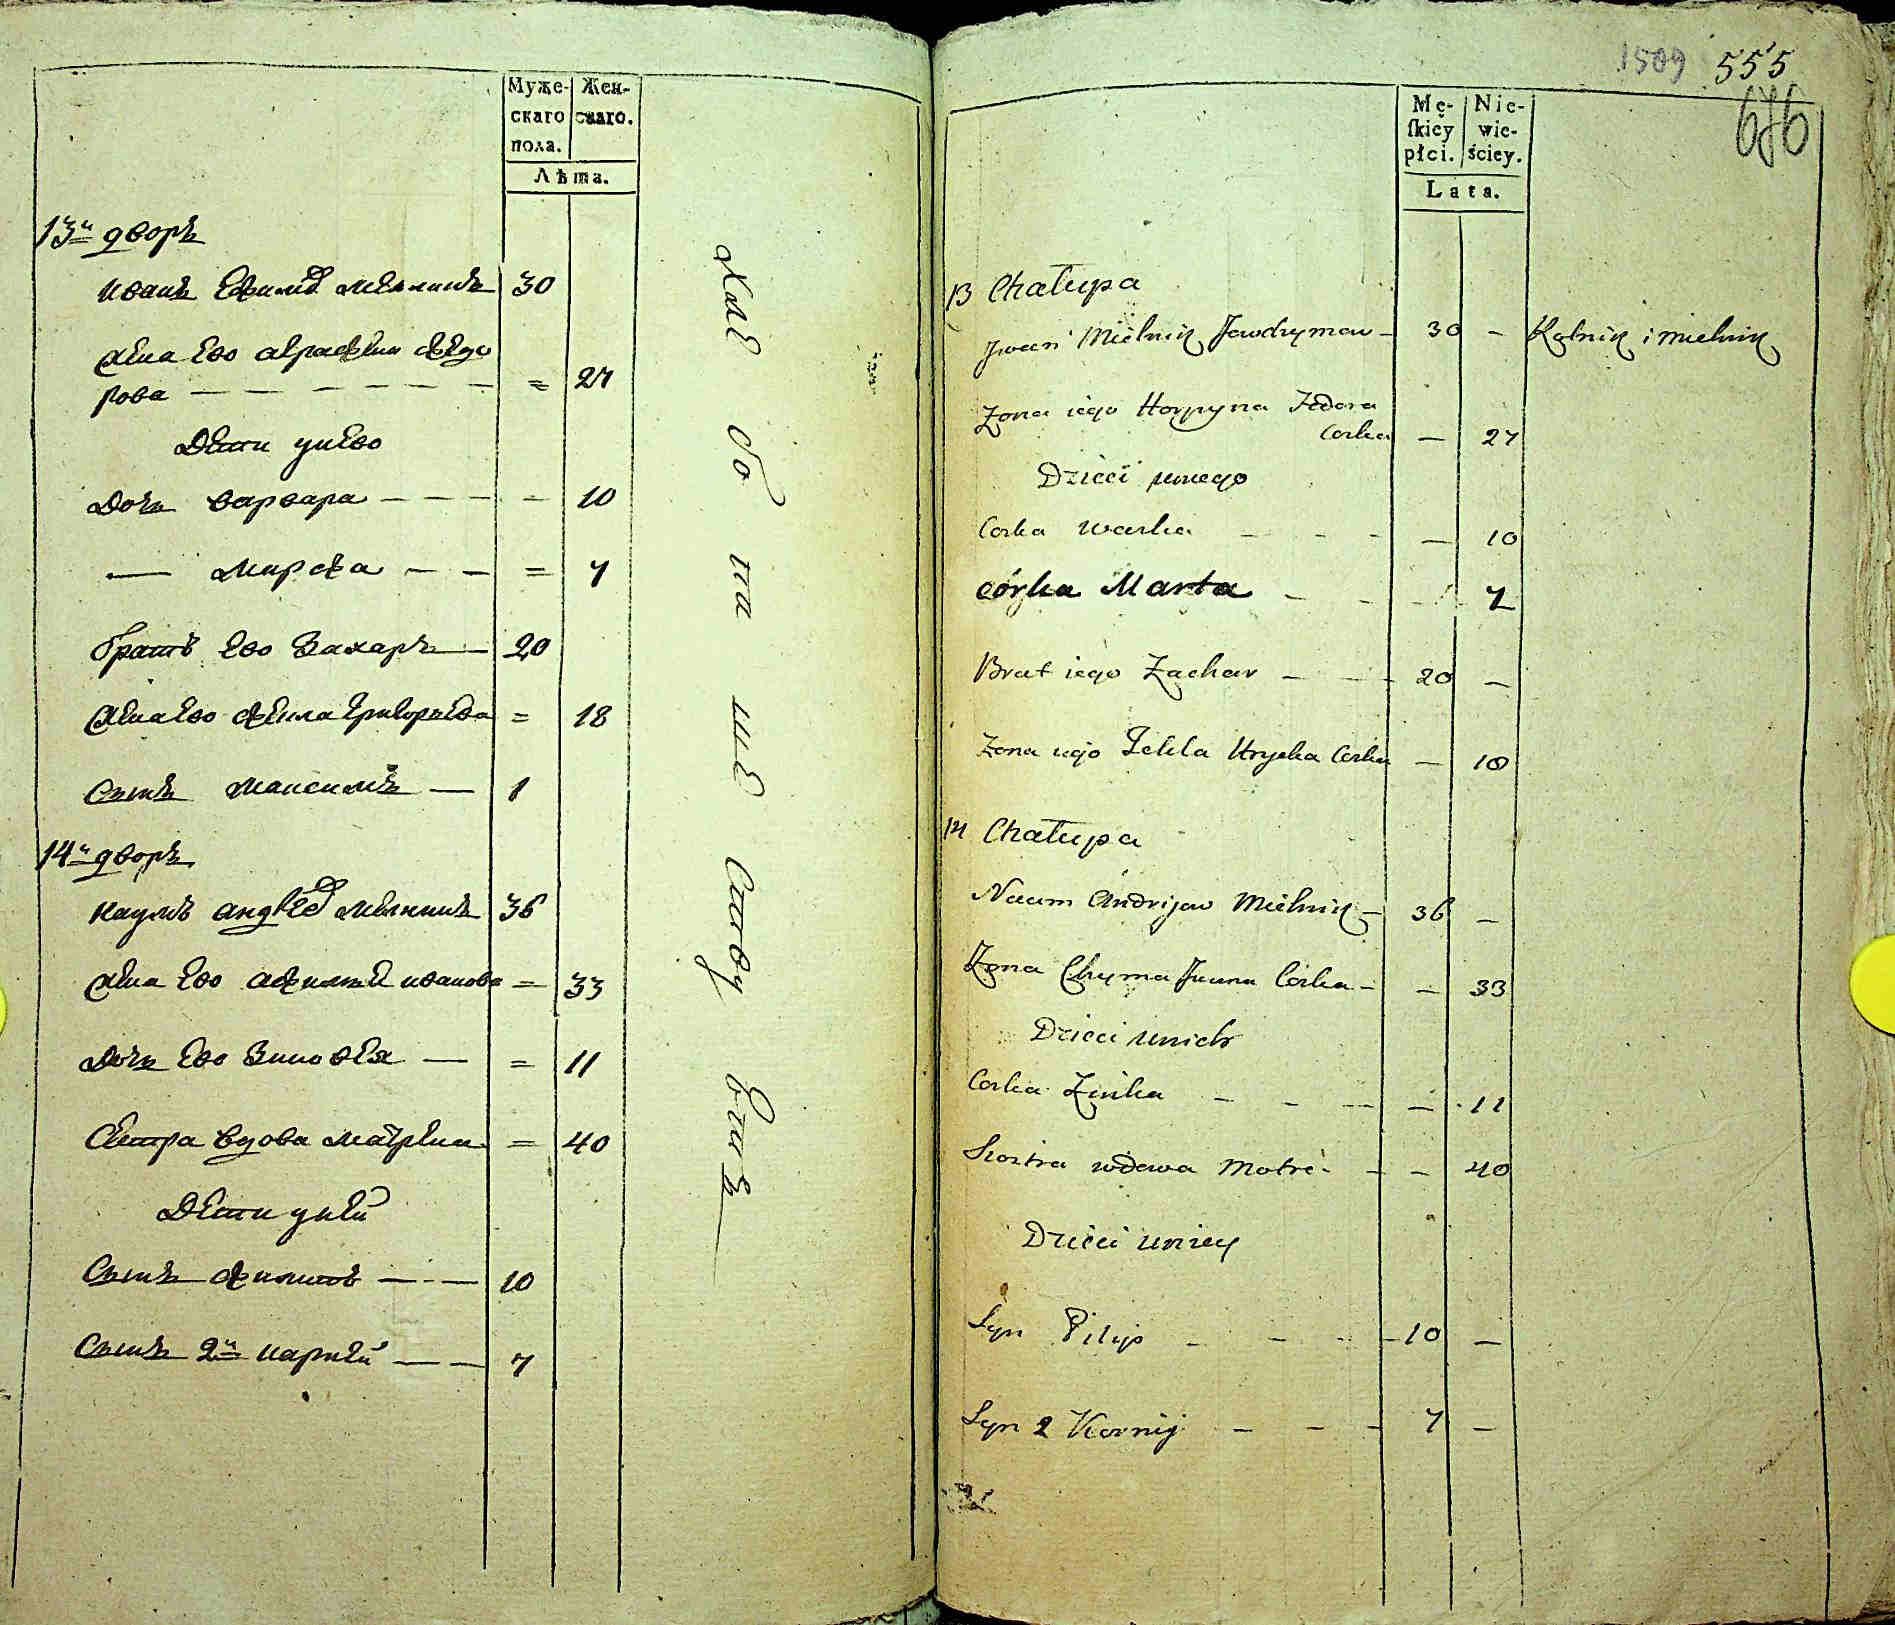 Муже-
скаго
пола.
Жен-
скаго.
Лѣта.
13й дворъ
Иванъ Ефимов Мелникъ 30
Жена Ево Аграфена Федо
рова — — — — — = 27
Дети унево
Дочь Варвара — — — — 10
— Марфа — — = 7
братъ Ево Захаръ — 20
Жена Ево Фекла Григорьева = 18
Сынъ Максимъ — 1
14й дворъ
Наумъ Андреев Мелникъ 36
Жена Ево Афимья иванова = 33
Дочь Ево Зиновея — = 11
Сестра вдова Матрена = 40
Дети уней
Сынъ Филипъ — — 10
Сынъ 2й Карней — — 7
1509 555
686
Mę-
ſkiey
płci.
Nie-
wie-
ściey.
Lata.
13 Chałupa
Jwan Mielnik Jewchymow – 30 – Rolnik i mielnik
Zona iego Horpyna Fedora
Corka — 27
Dzieci unego
Corka Warka — 10
córka Marta — 7
Brat iego Zachar — 20 —
Zona iego Tekla Hryćka Corka — 18
14 Chałupa
Naum Andrijow Mielnik – 36 —
Zona Chyma Jwana Corka – — 33
Dzieci unich
Corka Zinka — 11
Siostra wdowa Motre – — 40
Dzieci uniey
Syn Pilip — 10 —
Syn 2 Kornij — 7 —